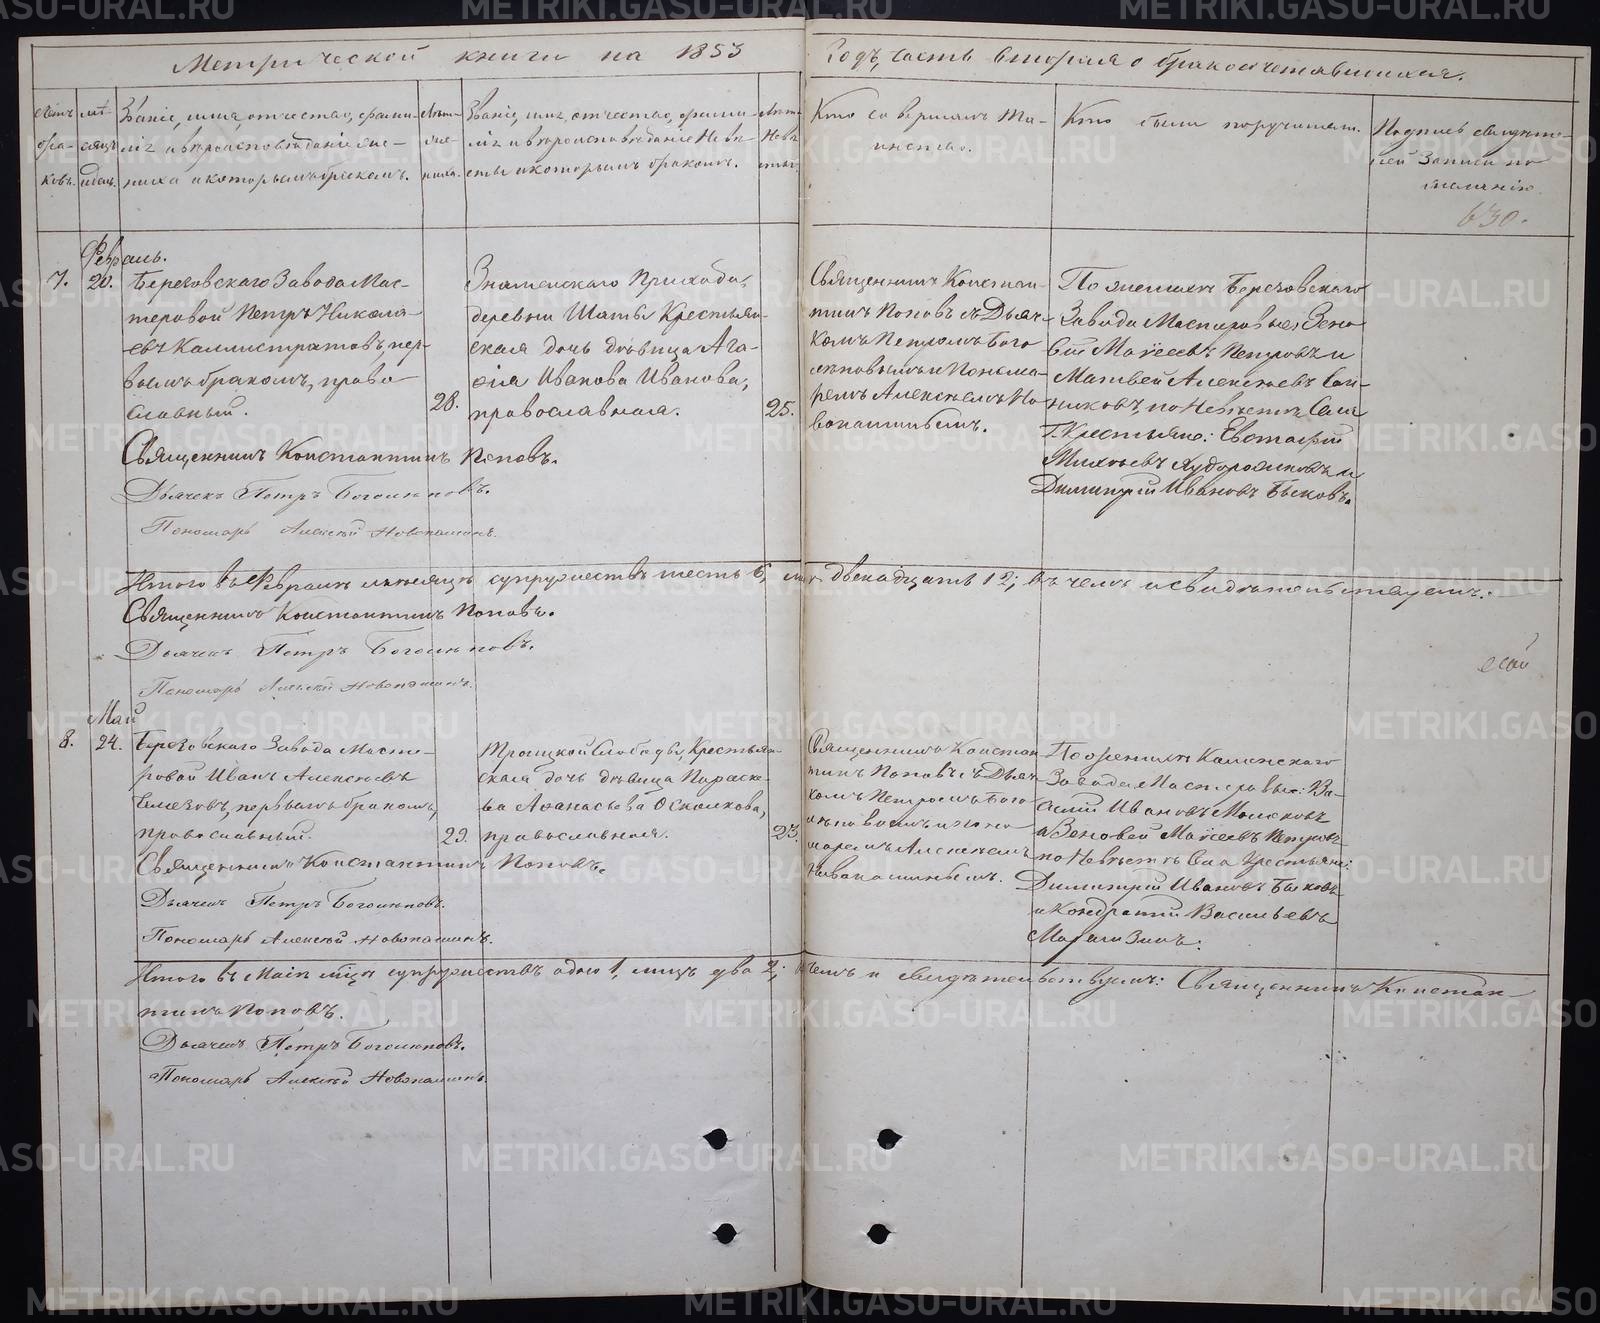 Метрической книги на 1853
Годъ, часть вторая о бракосочетавшихся.
Счетъ
бра-
ковъ.
мѣ-
сяцъ
и день.
Званіе, имя, отчество, фами-
лія и вѣроисповѣданіе же-
ниха и которымъ бракомъ.
Лѣта
же-
ниха.
Званіе, имя, отчество, фами-
лія и вѣроисповѣданіе Невѣ-
сты и которымъ бракомъ.
Лѣта
Невѣ-
сты.
Кто совершалъ Та-
инство.
Кто были поручители.
Подпись свидѣте-
лей записи по
желанію.
630.
Февраль.
7.
20.
Березовскаго Завода Мас-
теровой Петръ Никола-
евъ Каллистратовъ, пер-
вымъ бракомъ, право-
славный.
28.
Знаменскаго Прихода,
деревни Шаты Крестьян-
ская дочь дѣвица Ага-
фія Иванова Иванова,
православная.
25.
Священникъ Констан-
тинъ Поповъ съ Дьяч-
комъ Петромъ Бого-
лѣповымъ и Понома-
ремъ Алексѣемъ Но-
вопашинымъ.
По женихѣ Березовскаго
Завода Мастеровые, Зено-
вій Моѵсеевъ Петровъ и
Матвей Алексѣевъ
по Невѣстѣ Села
Г. Крестьяне: Евстафій
Михѣевъ Худорожковъ и
Димитрій Ивановъ Быковъ.
Священникъ Константинъ Поповъ.
Дьячекъ Петръ Боголѣповъ.
Пономарь Алексѣй Новопашинъ.
Итого въ Февралѣ мѣсяцѣ супружествъ шесть 6, лицъ двенадцать 12; въ чемъ и свидѣтельствуемъ:
Священникъ Константинъ Поповъ.
Дьячекъ Петръ Боголѣповъ.
Пономарь Алексѣй Новопашинъ.
Май
8.
24.
Березовскаго Завода Масте-
ровой Иванъ Алексѣевъ
первымъ бракомъ,
православный.
29.
Троицкой Слободы, Крестьян-
ская дочь дѣвица Параске-
ва Аѳанасьева Осколкова,
православная.
23.
Священникъ Констан-
тинъ Поповъ съ Дьяч-
комъ Петромъ Бого-
лѣповымъ и Поно-
маремъ Алексѣемъ
Новопашинымъ.
По женихѣ Каменскаго
Завода Мастеровые: Ва-
силій Ивановъ
и Зеновей Моѵсеевъ Петровъ
по Невѣстѣ Села Крестьяне:
Димитрій Ивановъ Быковъ
и Кондратій Васильевъ
Марамзинъ.
Священникъ Константинъ Поповъ.
Дьячекъ Петръ Боголѣповъ.
Пономарь Алексѣй Новопашинъ.
Итого въ Маіѣ мѣсяцѣ супружествъ одно 1, лицъ два 2; въ чемъ и свидѣтельствуемъ: Священникъ Констан-
тинъ Поповъ.
Дьячекъ Петръ Боголѣповъ.
Пономарь Алексѣй Новопашинъ.
METRIKI.GASO-URAL.RU